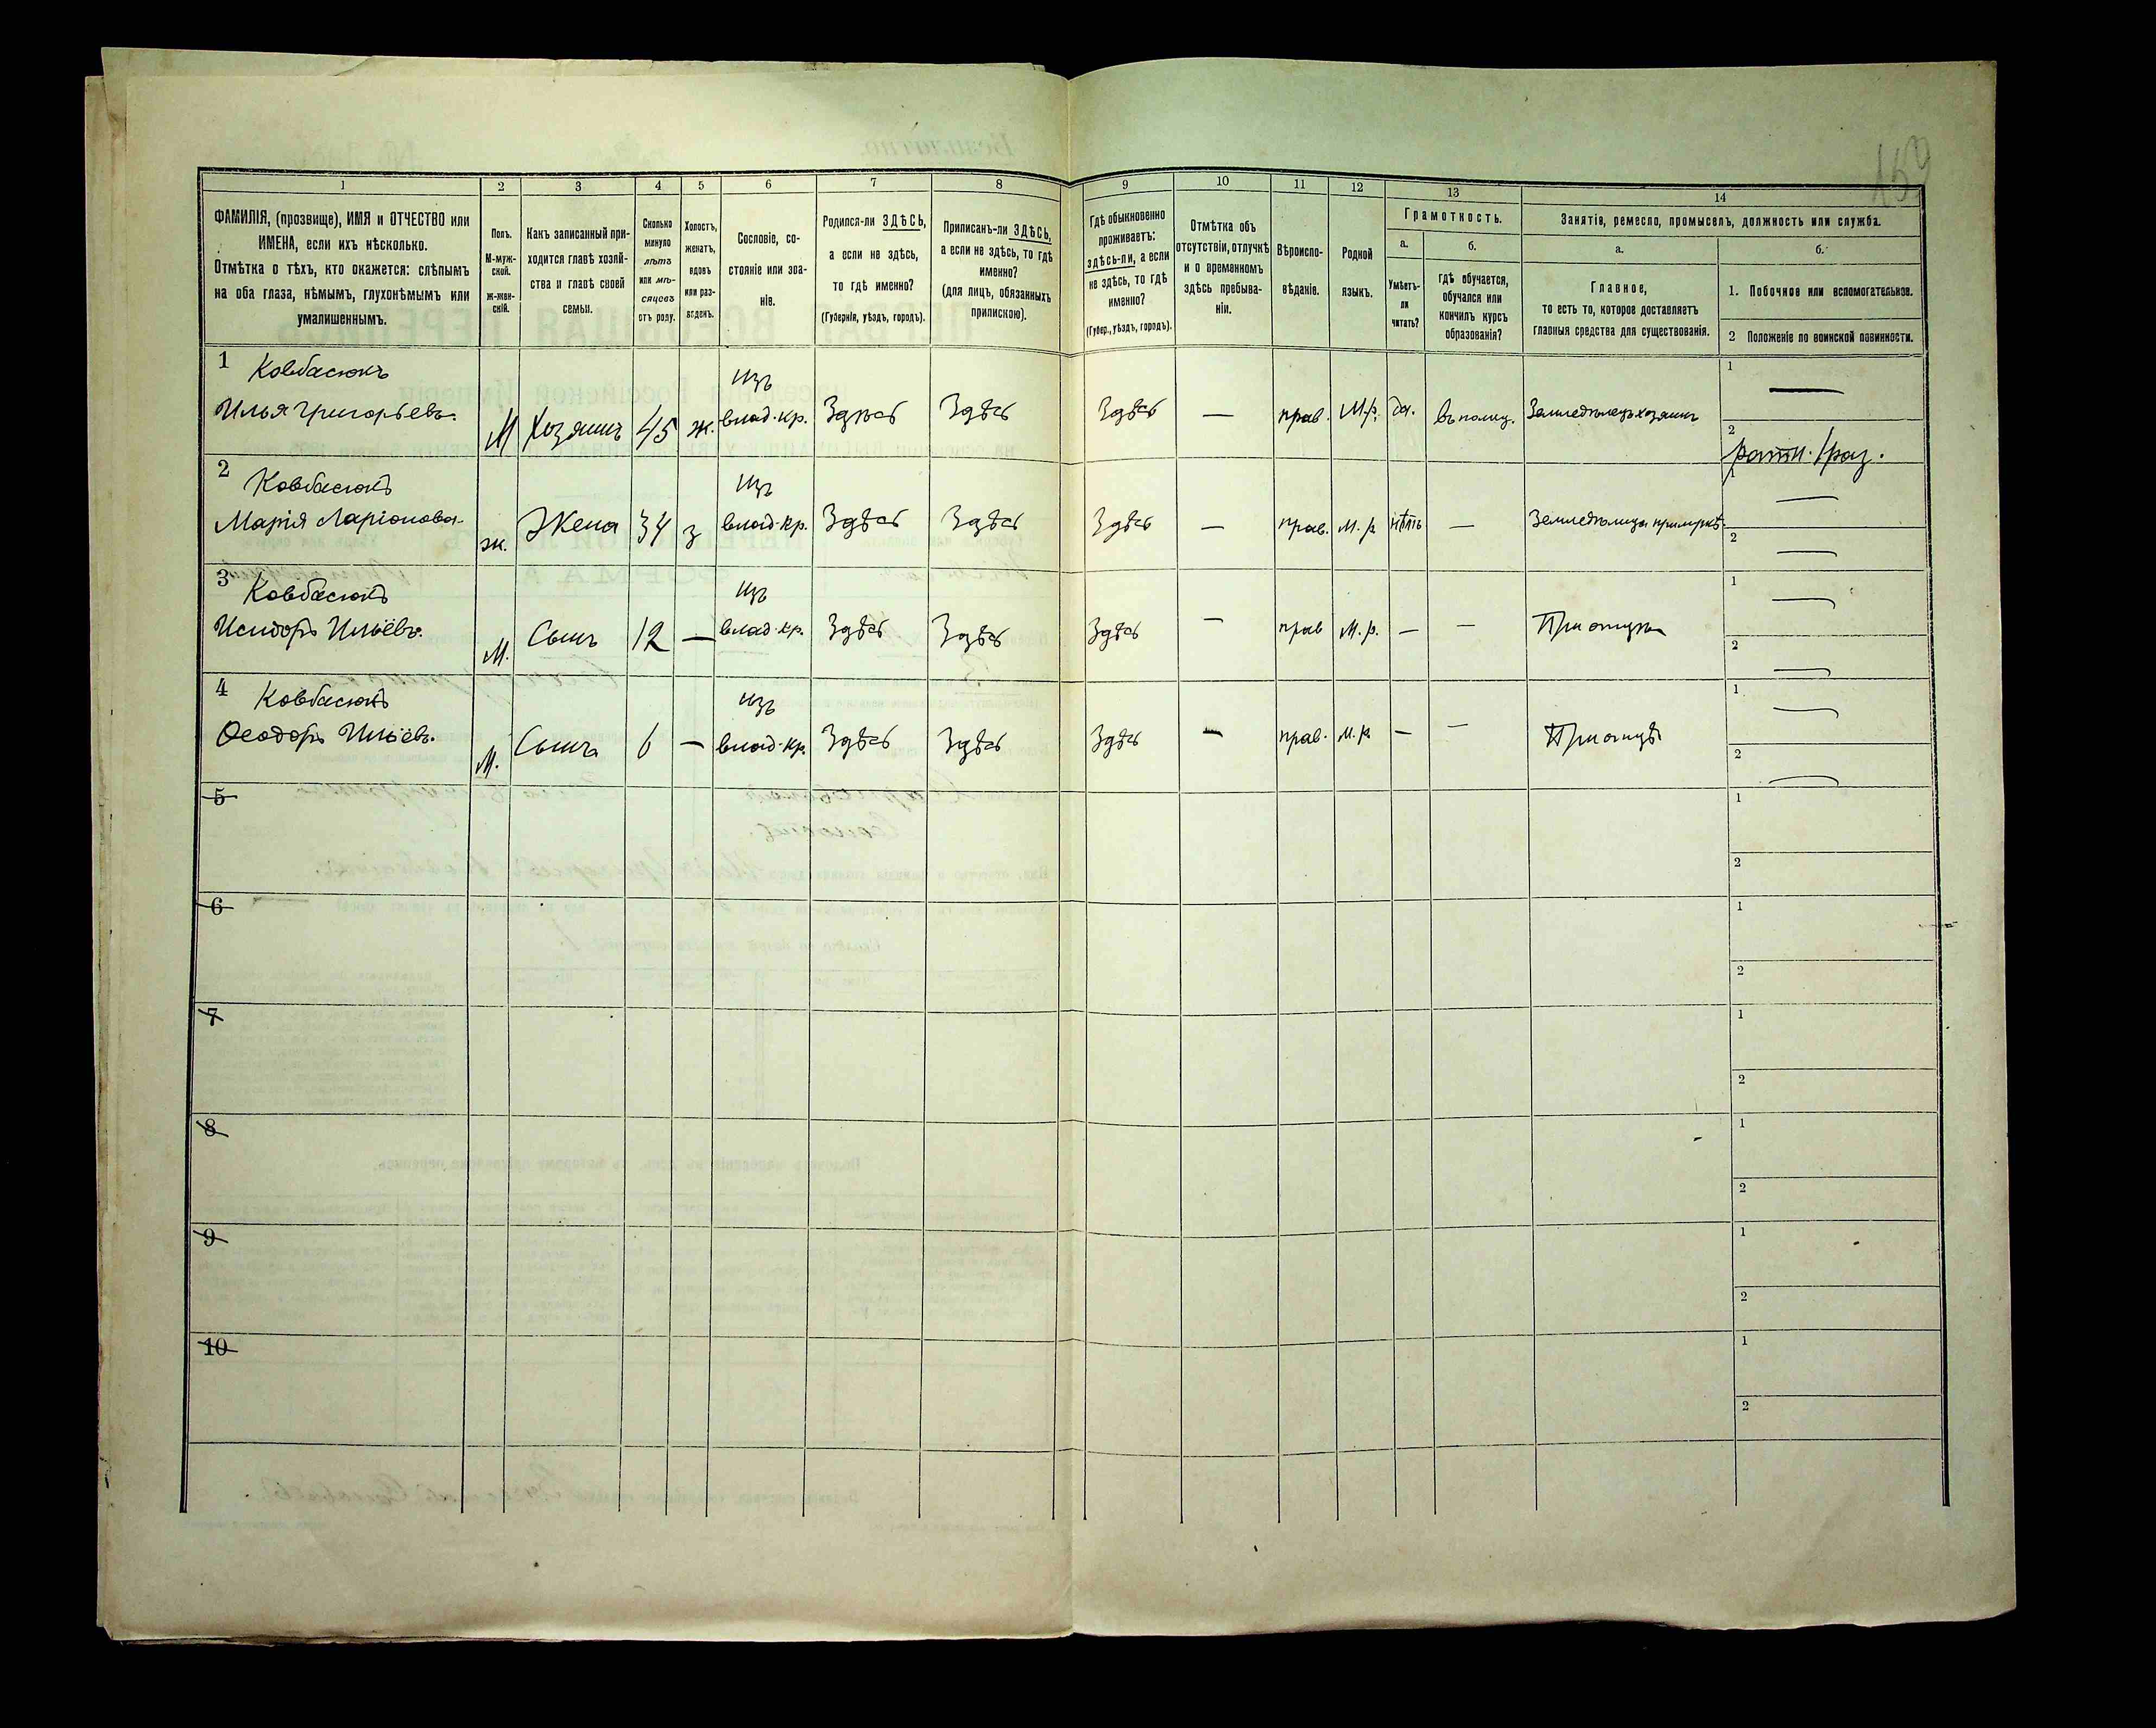 159
1 2 3 4 5 6 7 8 9 10 11 12 13 14
ФАМИЛІЯ, (прозвище), ИМЯ и ОТЧЕСТВО или
ИМЕНА, если ихъ нѣсколько.
Отмѣтка о тѣхъ, кто окажется: слѣпымъ
на оба глаза, нѣмымъ, глухонѣмымъ или
умалишеннымъ.
Полъ.
М-муж-
ской.
ж-жен-
скій.
Какъ записанный при-
ходится главѣ хозяй-
ства и главѣ своей
семьи.
Сколько
минуло
лѣтъ
или мѣ-
сяцевъ
отъ роду.
Холостъ,
женатъ,
вдовъ
или раз-
веденъ.
Сословіе, со-
стояніе или зва-
ніе.
Родился-ли ЗДѢСЬ,
а если не здѣсь,
то гдѣ именно?
(Губернія, уѣздъ, городъ).
Приписанъ-ли ЗДѢСЬ,
а если не здѣсь, то гдѣ
именно?
(для лицъ, обязанныхъ
припискою).
Гдѣ обыкновенно
проживаетъ:
здѣсь-ли, а если
не здѣсь, то гдѣ
именно?
(Губер., уѣздъ, городъ).
Отмѣтка объ
отсутствіи, отлучкѣ
и о временномъ
здѣсь пребыва-
ніи.
Вѣроиспо-
вѣданіе.
Родной
языкъ.
Грамотность.
а.
Умѣетъ-
ли
читать?
б.
гдѣ обучается,
обучался или
кончилъ курсъ
образованія?
Занятіе, ремесло, промыселъ, должность или служба.
а.
Главное,
то есть то, которое доставляетъ
главныя средства для существованія.
б.
1. Побочное или вспомогательное.
2 Положеніе по воинской повинности.
1 Ковбасюкъ
Илья Григорьевъ.
М Хозяинъ 45 ж. изъ
влад. кр. Здѣсь Здѣсь Здѣсь — прав. М.р. да. Земледѣлецъ хозяинъ
1 —
2 ратн. 1 раз.
2 Ковбасюкъ
Марія Ларіонова
ж. Жена 34 з изъ
влад. кр. Здѣсь Здѣсь Здѣсь — прав. М. р. нѣтъ —
1 —
2 —
3 Ковбасюкъ
Исидоръ Ильёвъ.
М. Сынъ 12 — изъ
влад. кр. Здѣсь Здѣсь Здѣсь — прав М. р. — — При отцѣ
1 —
2 —
4 Ковбасюкъ
Ѳеодоръ Ильёвъ.
М. Сынъ 6 — изъ
влад. кр. Здѣсь Здѣсь Здѣсь — прав. М. р. — — При отцѣ
1 —
2 —
5
1
2
6
1
2
7
1
2
8
1
2
9
1
2
10
1
2